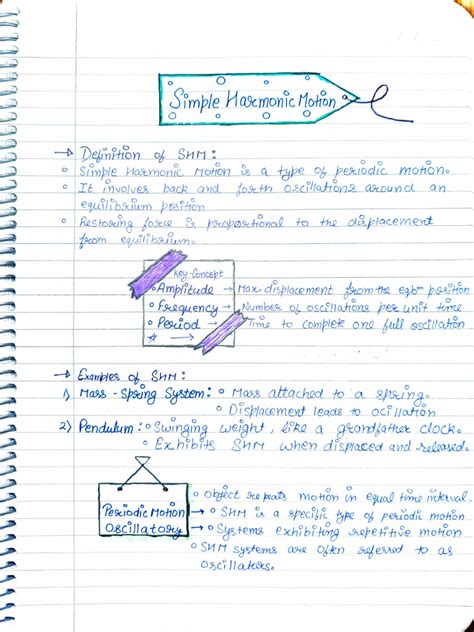 Simple Harmonic Motion
→ Definition of SHM:
Simple Harmonic Motion is a type of periodic motion.
It involves back and forth oscillations around an
equilibrium position
Restoring force is proportional to the displacement
from equilibrium.
Key-Concept
Amplitude → Max-displacement from the eqbm position
Frequency → Number of oscillations per unit time
Period → Time to complete one full oscillation
→ Examples of SHM:
1) Mass-Spring System: Mass attached to a spring.
Displacement leads to ocillation
2) Pendulum: Swinging weight, like a grandfather clock.
Exhibits SHM when displaced and released.
Object repeats motion in equal time interval.
Periodic Motion → SHM is a specific type of periodic motion
Oscillatory → Systems exhibiting repetitive motion
SHM systems are often referred to as
oscillators.